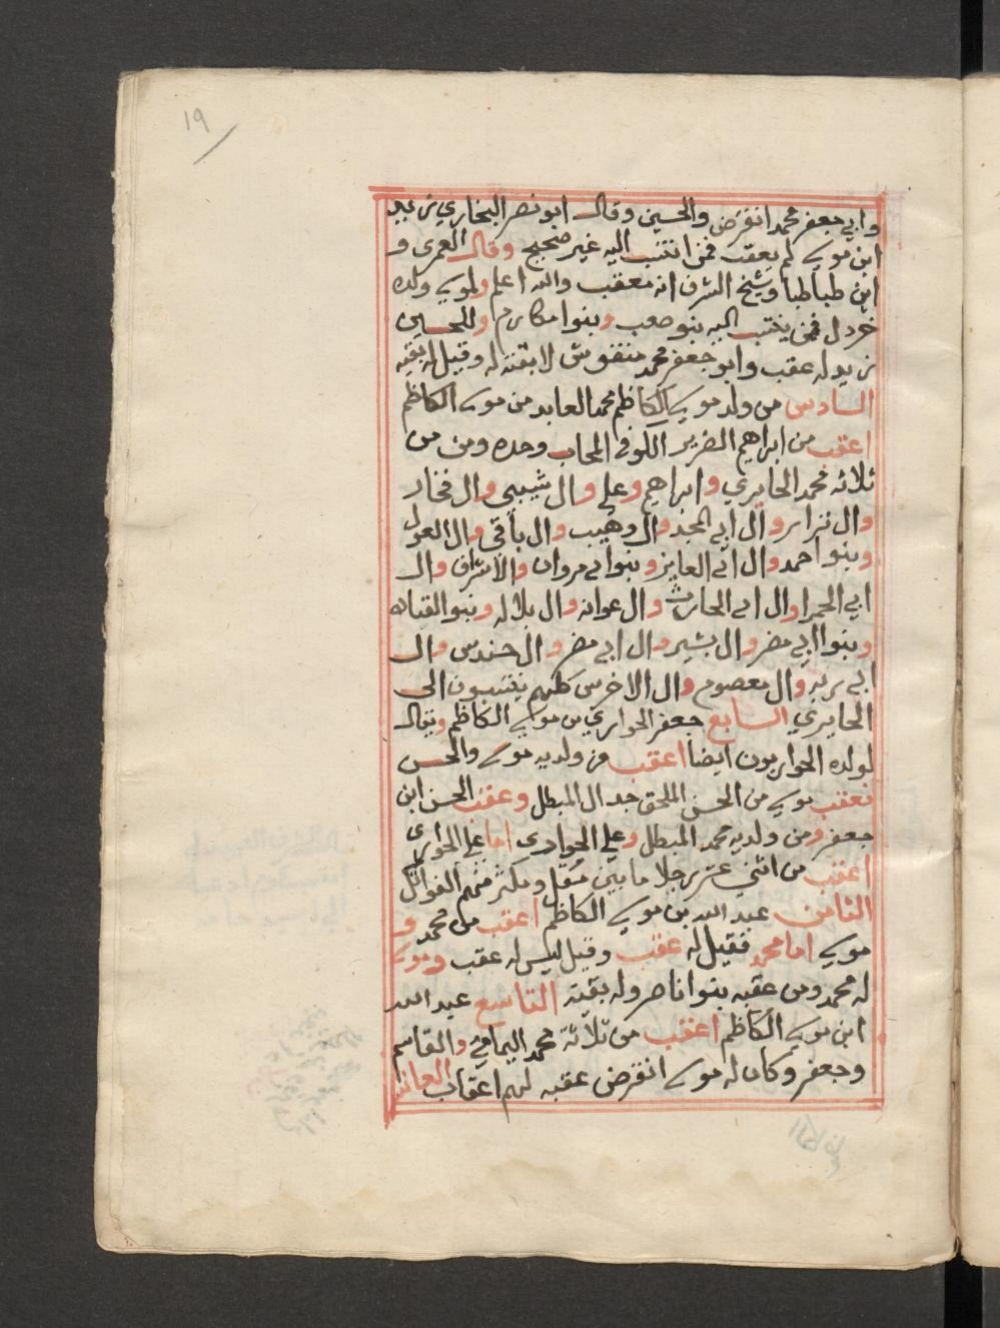 ١٩
وابي جعفر محمد انقرض والحسين وقال ابو نصر البخاري زيد
ابن موسى لم يعقب فمن انتسب اليه غير صحيح وقال العمرى و
ابن طباطبا وشيخ الشرف انه معقب والله اعلم ولموسى ولده
خردل فمن ينتسب اليه بنو صعب وبنوا مكارم وللحسين
زيد له عقب وابو جعفر محمد منقوش لا بقية له وقيل له بقيه
السادس من ولد موسى الكاظم محمد العابد من موسى الكاظم
اعقب من ابراهيم الضرير الكوفى المجاب وحده ومن من
ثلاثه محمد الحايري وابراهيم وعلي وال شيبي وال فخار
وال نزار وال ابي المجد وال وهيب وال باقى وال العول
وبنو احمد وال ابي العايز وبنوا بي مروان والاشراف وال
ابي الحمرا وال ابي الحارث وال عوانه وال بلاله وبنوا القتاده
وبنوا ابي مضر وال بشير وال ابي مضر وال حندس وال
ابي ريه وال معصوم وال الاخرس كلهم ينتسبون الى
الحايري السابع جعفر الحواري من موسى الكاظم ويقال
لولده الحواريون ايضا اعقب من ولديه موسى والحسن
فعقب موسى من الحسن الملحق جد ال المبطل وعقب الحسن ابن
جعفر ومن ولديه محمد المبطل وعلي الحوارى اما علي الحواري
اعقب من اثني عشر رجلا ما بين مقل ومكثر منهم الفواتك
الثامن عبد الله بن موسى الكاظم اعقب من محمد و
موسى اما محمد فقيل له عقب وقيل ليس له عقب وموسى
له محمد ومن عقبه بنوا ناصر وله بقية التاسع عبيد الله
ابن موسى الكاظم اعقب من ثلاثة محمد اليمامي والقاسم
وجعفر وكان له موسى انقرض عقبه لهم اعقاب العاشر